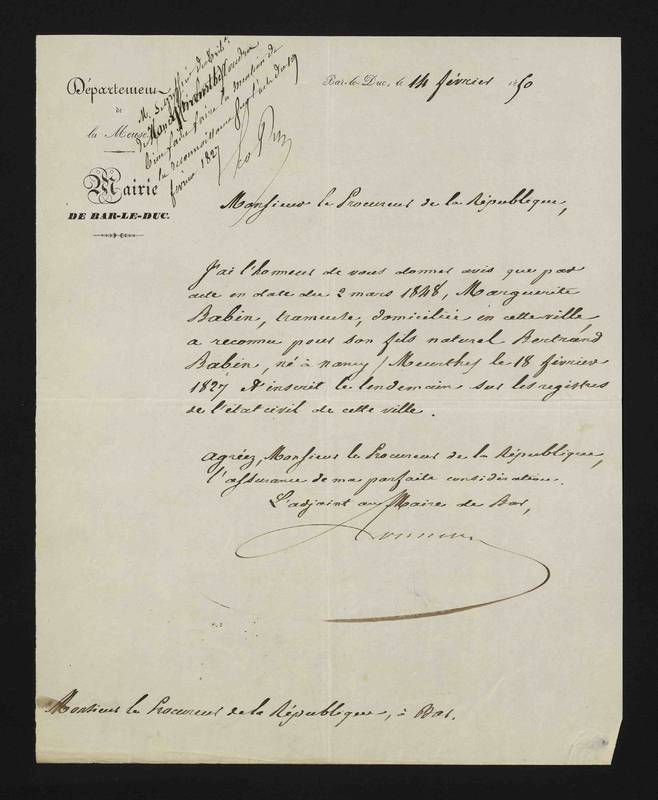 Département
de
la Meuse
Mairie
DE BAR-LE-DUC.
M. Le greffier du Trib.
de Nancy voudra
bien faire faire la mention de
la reconnaissance sur l'acte du 19
février 1827
Bar-le-Duc, le 14 février 1850
Monsieur le Procureur de la République,
J'ai l'honneur de vous donner avis que par
acte en date du 2 mars 1848, Marguerite
Babin, trameuse, domiciliée en cette ville,
a reconnu pour son fils naturel Bertrand
Babin, né à nancy (Meurthe) le 18 février
1827 & inscrit le lendemain sur les registres
de l'état civil de cette ville.
Agréez, Monsieur le Procureur de la République,
l'assurance de ma parfaite considération.
L'adjoint au Maire de Bar,
Monsieur le Procureur de la République, à Bar.